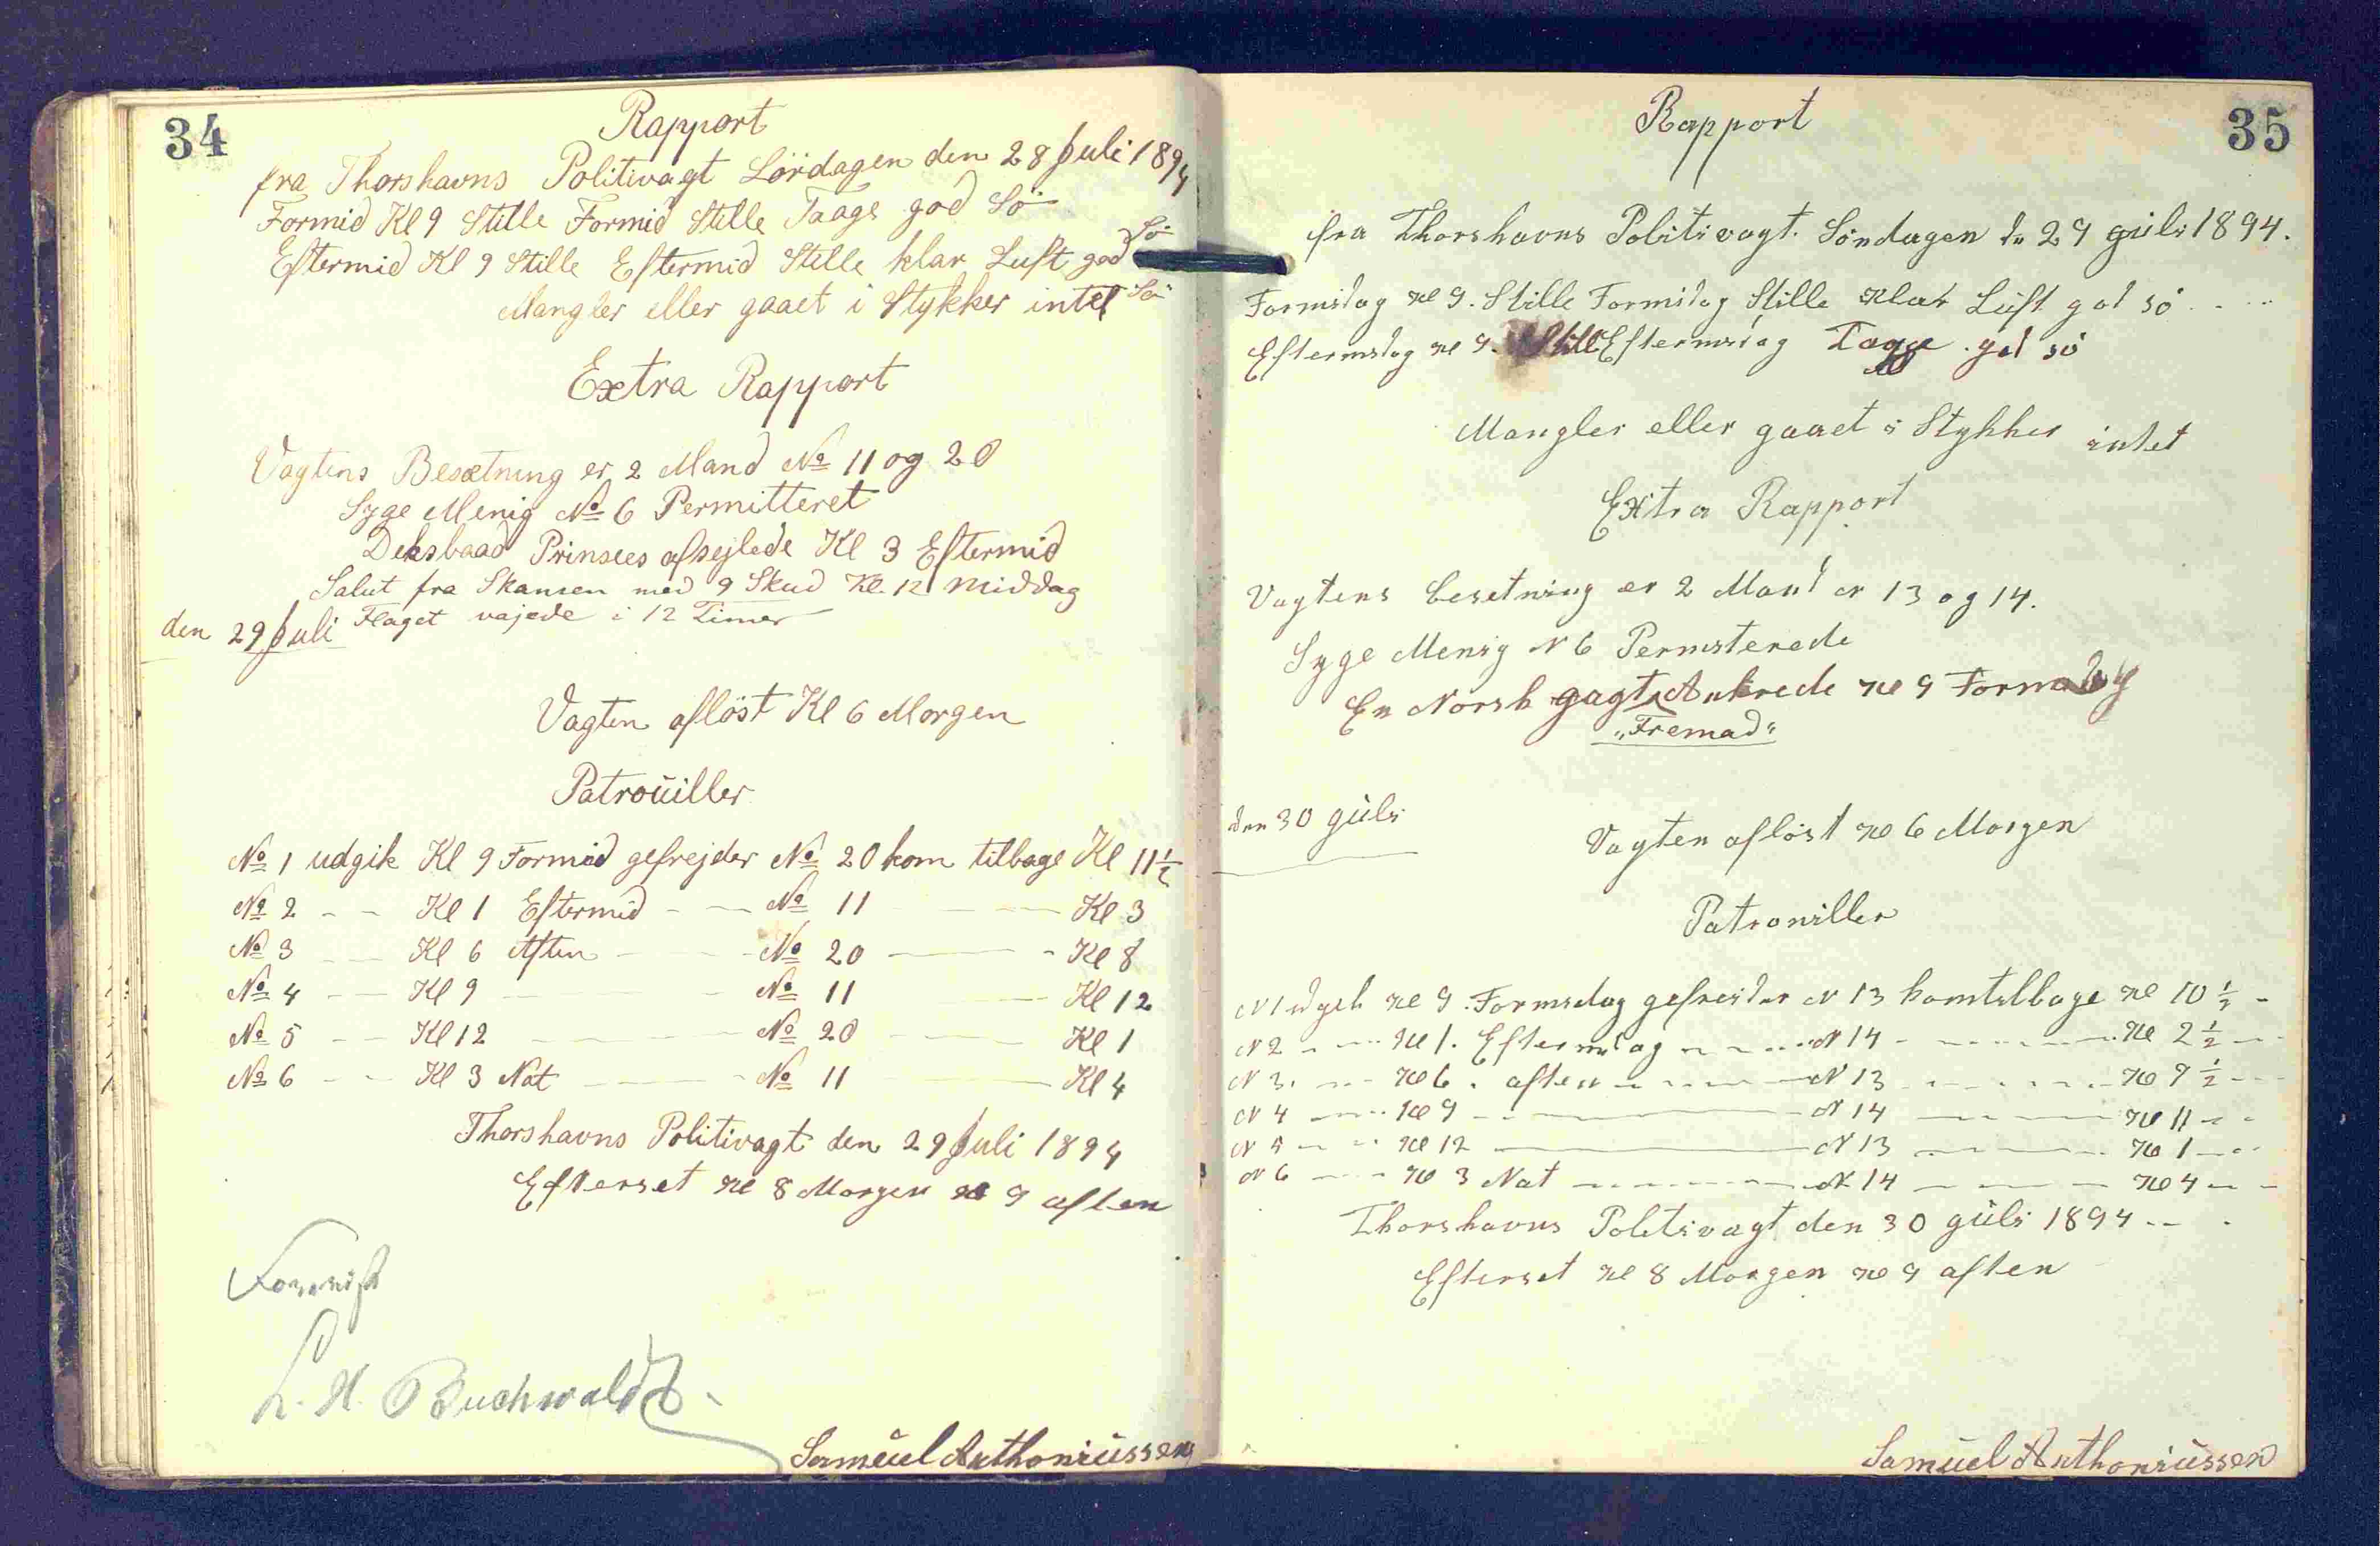 34
Rapport
fra Thorshavns Politivagt Lördagen den 28 Juli 1894
Formid Kl 9 Stille Formid Stille Taage god Sö
Eftermid Kl 9 Stille Eftermid Stille klar Luft god Sö
Mangler eller gaaet i Stykker intet
Extra Rapport
Vagtens Besætning er 2 Mand No 11 og 20
Syge Menig No 6 Permitteret
Deksbaad Prinsees afsejlede Kl 3 Eftermid
Salut fra Skansen med 9 Skud Kl. 12 Middag
Flaget vajede i 12 Timer
den 29 Juli
Vagten aflöst Kl 6 Morgen
Patroüiller
No 1 udgik Kl 9 Formid gefrejder No 20 kom tilbage Kl 11 1/2
No 2 - - Kl 1 Eftermid - - No 11 - - Kl 3
No 3 - - Kl 6 Aften - - No 20 - - Kl 8
No 4 - - Kl 9 - - No 11 - - Kl 12
No 5 - - Kl 12 - - No 20 - - Kl 1
No 6 - - Kl 3 Nat - - No 11 - - Kl 4
Thorshavns Politivagt den 29 Juli 1894
Efterset Kl 8 Morgen Kl 9 aften
L. H. Buchwaldt
Samüel Anthoniüssen
35
Rapport
fra Thorshavns Politivagt. Söndagen dn 29 güli 1894.
Formidag Kl 9. Stille Formidag Stille Klar Lüft god sö
Eftermidag Kl 9. Stille Eftermidag Taage god sö
Mangler eller gaaet i Stykker intet
Extra Rapport
Vagtens besetning er 2 Mand N 13 og 14.
Syge Menig N 6 Permiterede
En Norsk gagt Ankrede Kl 9 Formidag
„Fremad“
den 30 güli
Vagten aflöst Kl 6 Morgen
Patrouiller
N 1 udgik Kl 9. Formidag gefreider N 13 kom tilbage Kl 10 1/2 -
N 2 - - Kl 1. Eftermidag - - N 14 - - Kl 2 1/2 - -
N 3. - - Kl 6. aften - - N 13 - - Kl 7 1/2 - -
N 4 - - Kl 9 - - N 14 - - Kl 11 - -
N 5 - - Kl 12 - - N 13 - - Kl 1 - -
N 6 - - Kl 3 Nat - - N 14 - - Kl 4 - -
Thorshavns Politivagt den 30 güli 1894 - -
Efterset Kl 8 Morgen Kl 9 aften
Samüel Anthoniüssen